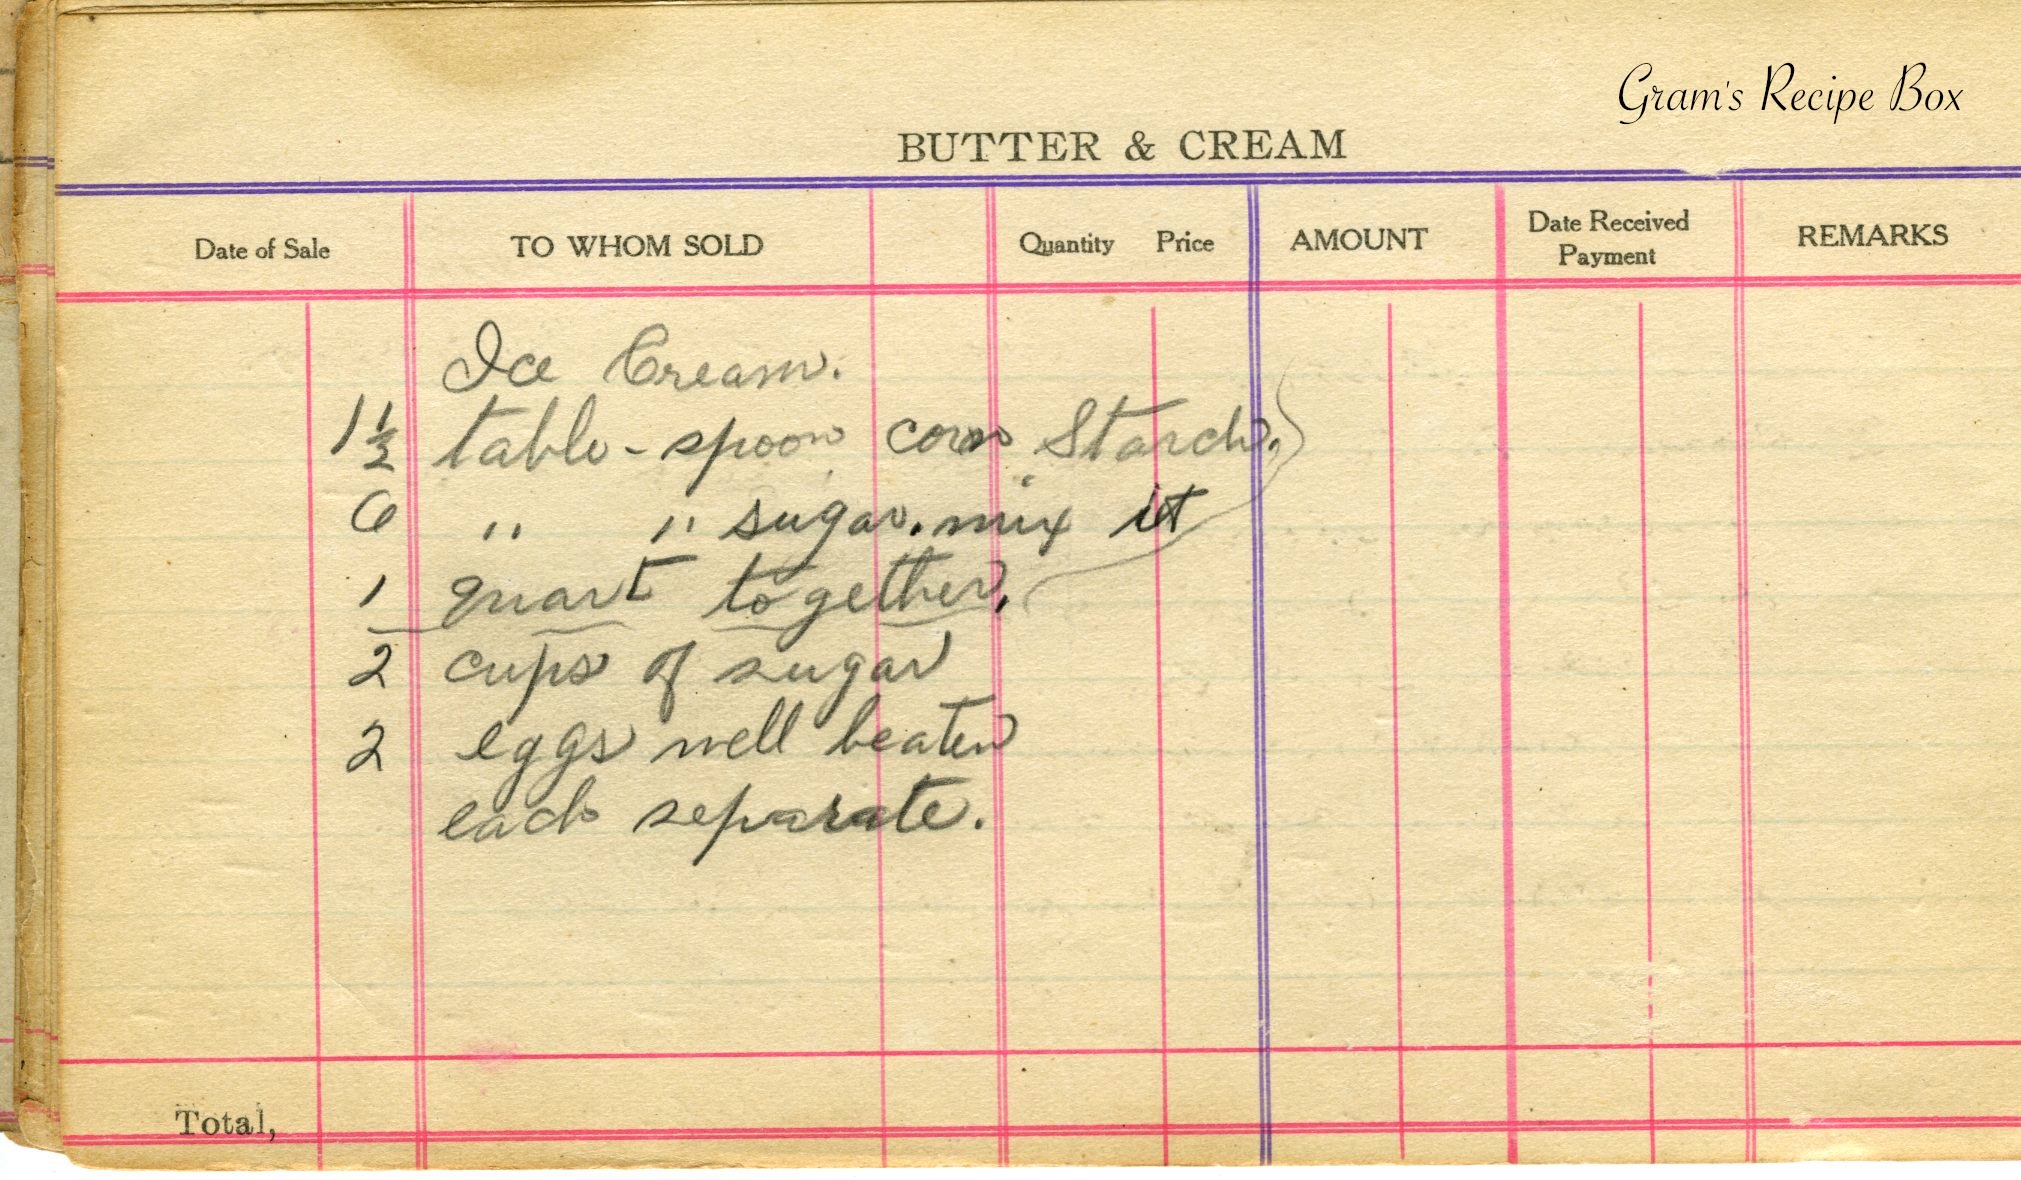 Gram's Recipe Box
BUTTER & CREAM
Date of Sale TO WHOM SOLD Quantity Price AMOUNT Date Received Payment REMARKS
Ice Cream.
1 1/2 table-spoon corn Starch.
6 " " sugar. mix it
1 quart together.
2 cups of sugar
2 eggs well beaten
each separate.
Total,